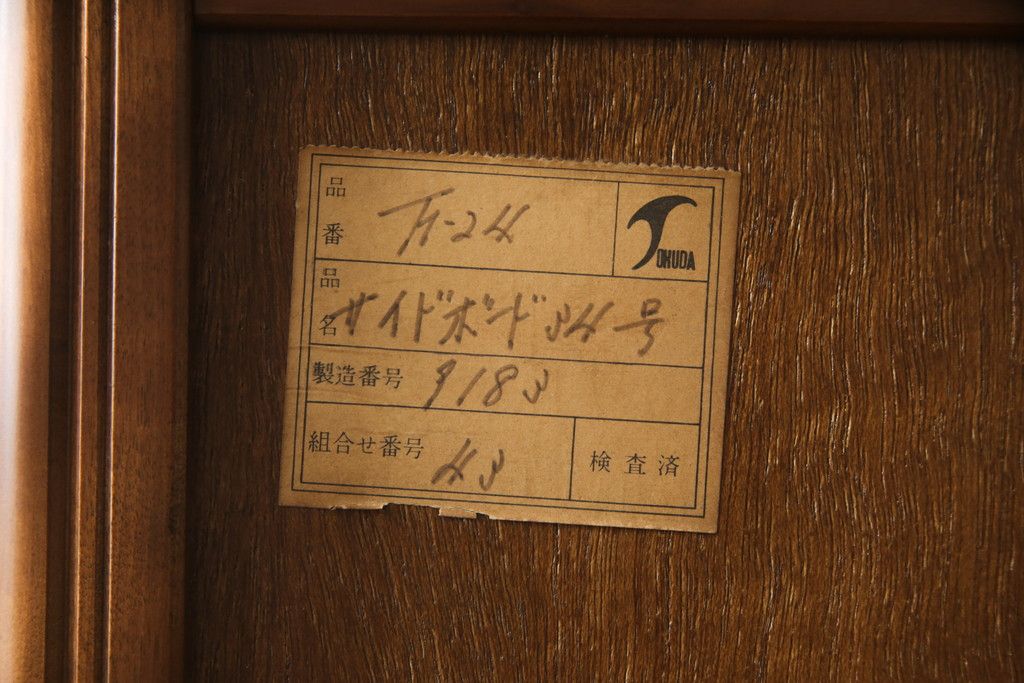 品番 TH-24
TOKUDA
品名 サイドボード34号
製造番号 9183
組合せ番号 43
検査済